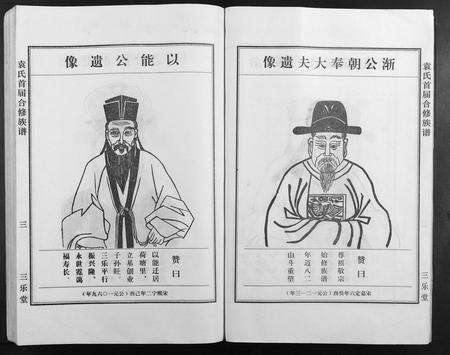 袁氏首届合修族谱
三乐堂
渐公朝奉大夫遗像
赞曰
尊祖敬宗
始修族谱
年八二
山斗重望
宋嘉定六年癸酉（公元一二一三年）
以能公遗像
赞曰
以能迁居
荷塘里，
立基创业
子孙旺，
三乐平行
振兴隆，
永世宽荡
福寿长
宋熙宁二年己酉（公元一〇六九年）
袁氏首届合修族谱
三
三乐堂